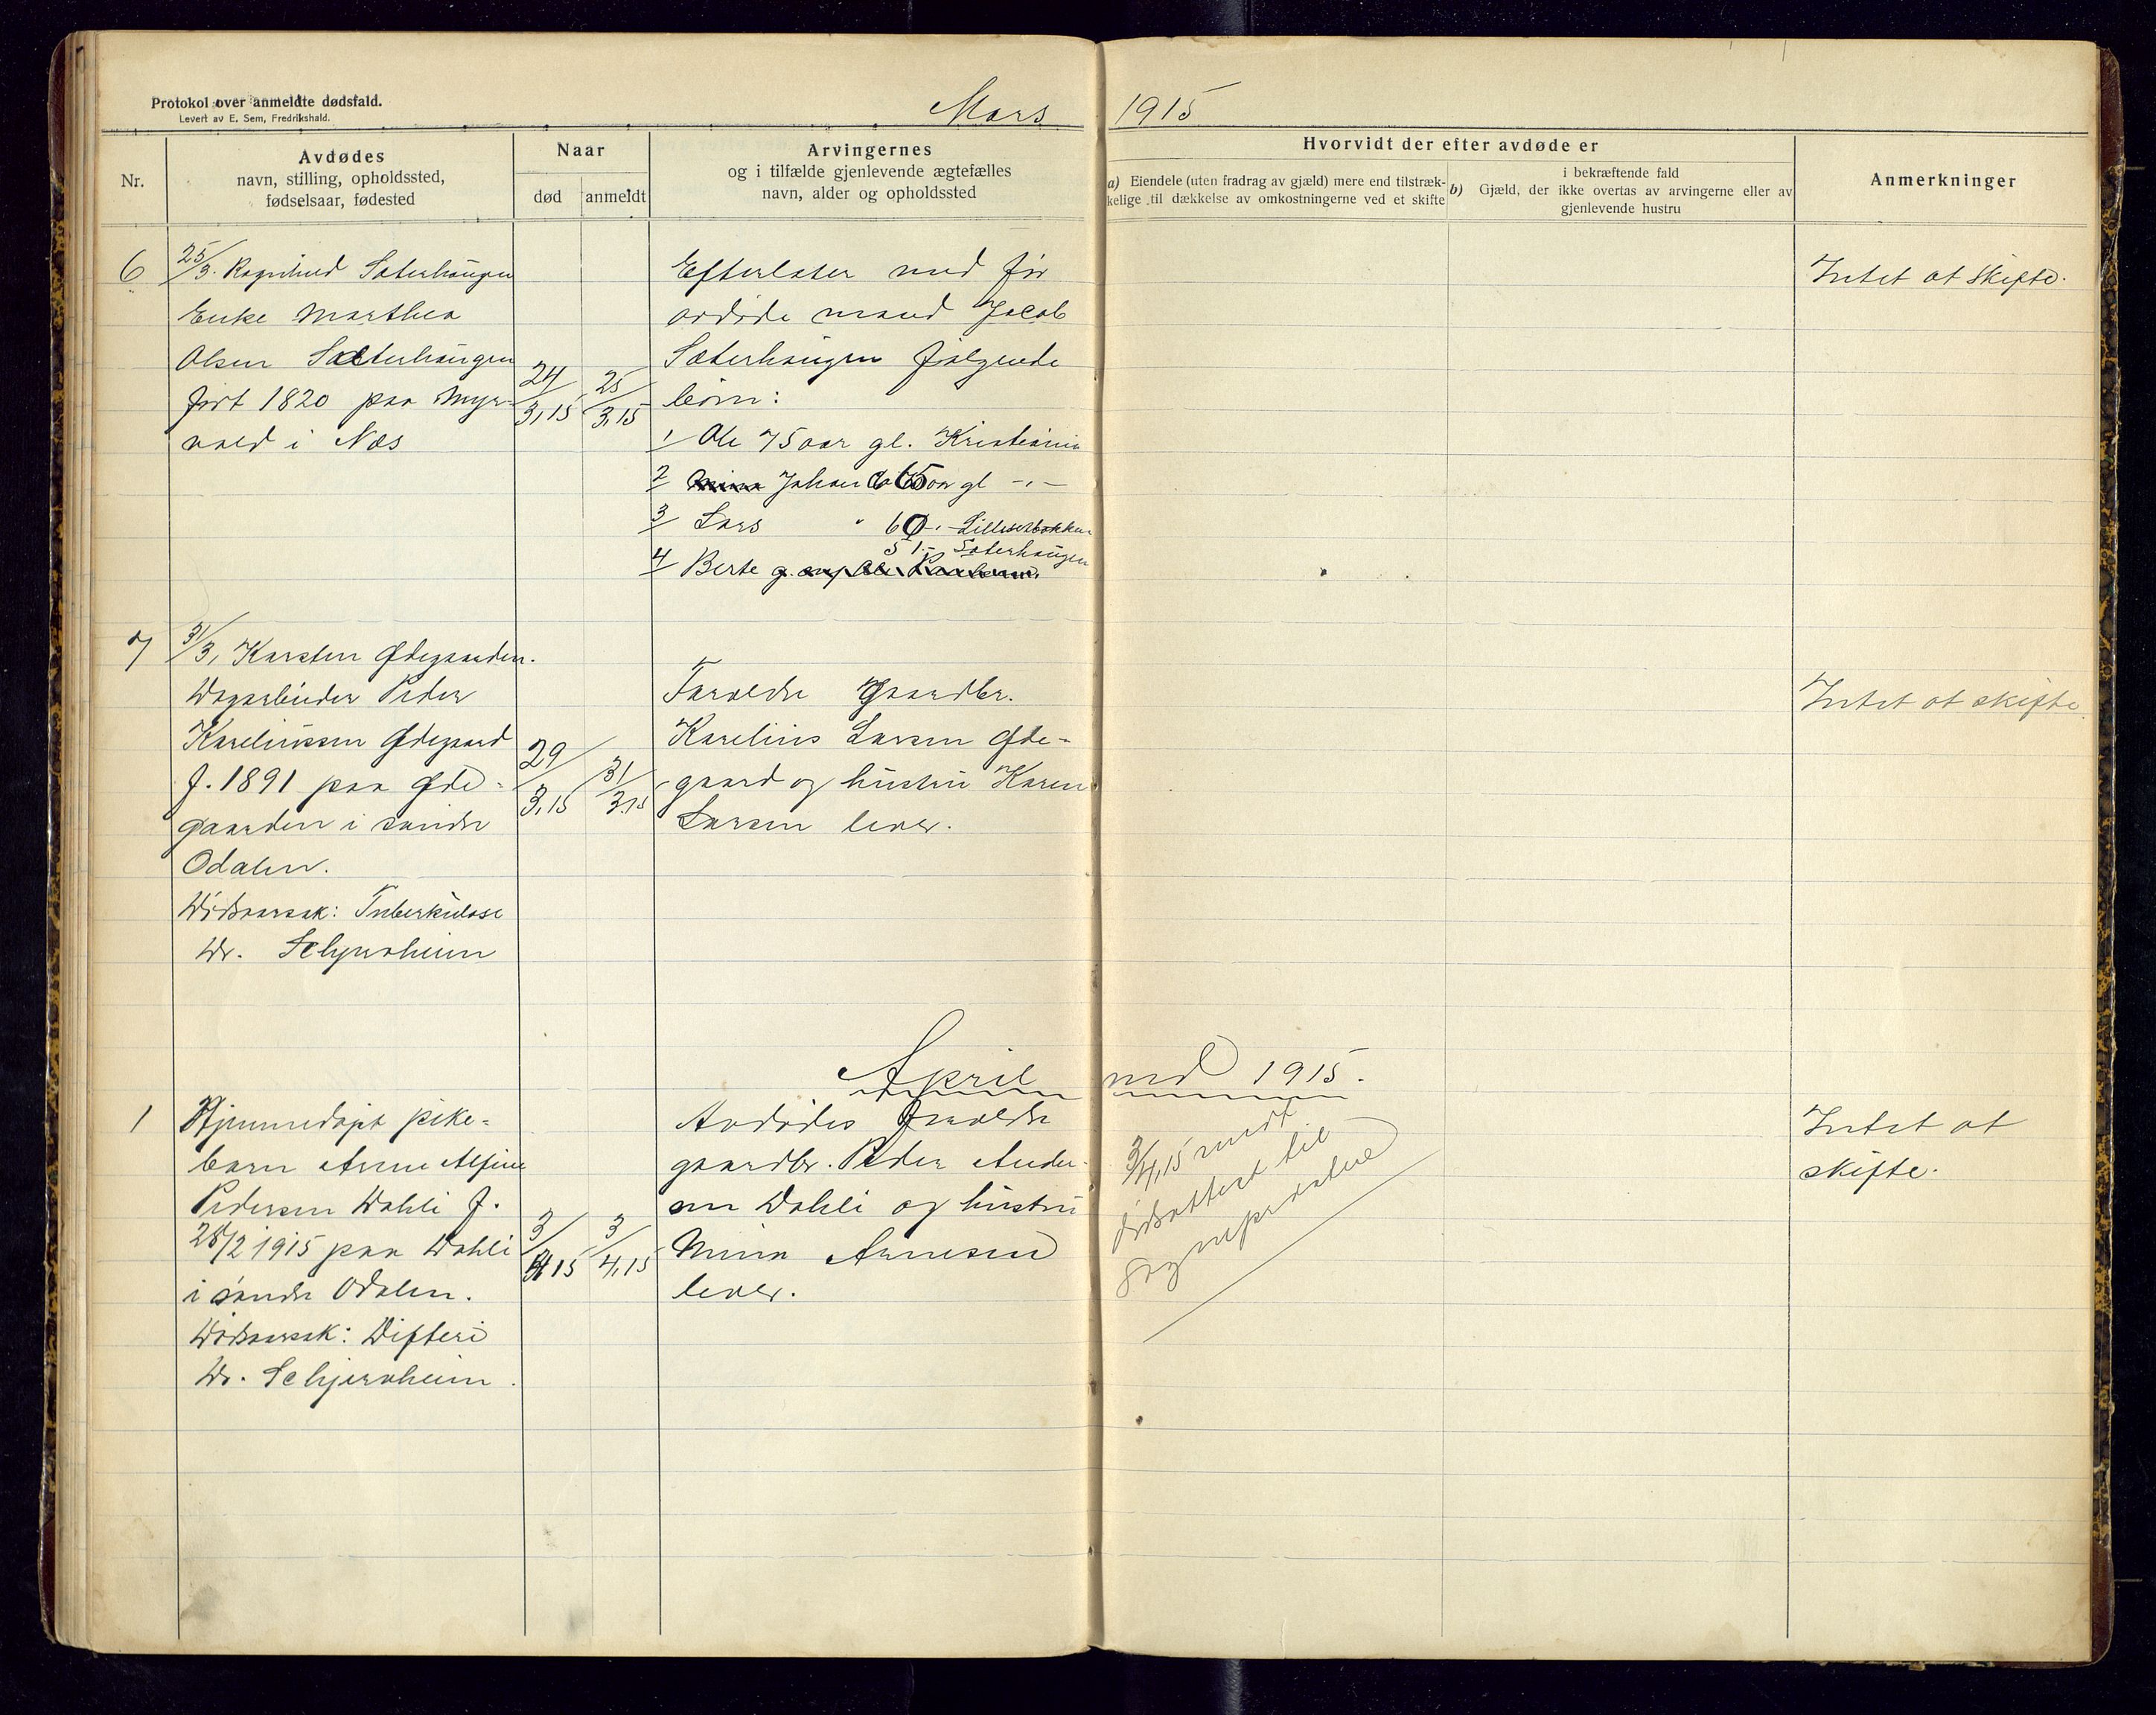 Protokol over anmeldte dødsfald.
Levert av E. Sem, Fredrikshald.
Mars 1915
Nr.
Avdødes
navn, stilling, opholdssted,
fødselsaar, fødested
Naar
død
anmeldt
Arvingernes
og i tilfælde gjenlevende ægtefælles
navn, alder og opholdssted
Hvorvidt der efter avdøde er
a) Eiendele (uten fradrag av gjæld) mere end tilstræk-
kelige til dækkelse av omkostningerne ved et skifte
i bekræftende fald
b) Gjæld, der ikke overtas av arvingerne eller av
gjenlevende hustru
Anmerkninger
6
25/3. Ragnhild Sæterhaugen
Enke Marthea
Olsen Sæterhaugen
født 1820 paa Myr-
vold i Næs
24/3,15
25/3,15
Efterlater med før
avdøde mand Jacob
Sæterhaugen følgende
børn:
1/ Ole 75 aar gl. Kristiania
2/ Johan 65 aar gl -"-
3/ Lars " 60 -"- Lillesetbakken
51 - Sæterhaugen
4/ Berte
Intet at skifte.
7
31/3, Karsten Ødegaarden.
Dagarbeider Peder
Kareliussen Ødegaard
f. 1891 paa Øde-
gaarden i søndre
Odalen.
Dødsaarsak: Tuberkulose
Dr. Schjervheim
29/3,15
31/3.15
Forældre Gaardbr.
Karelius Larsen Øde-
gaard og hustru Karen
Larsen lever.
Intet at skifte
April md 1915.
1
Hjemmedøpt pike-
barn Anne Alfine
Pedersen Dahli f.
28/2 1915 paa Dahli
i søndre Odalen.
Dødsaarsak: Difteri
Dr. Schjervheim.
3/4 15
3/4,15
Avdødes forældre
gaardbr. Peder Ander-
sen Dahli og hustru
Mina Arnesen
lever.
3/4,15 sendt
dødsattest til
sogneprestene
Intet at
skifte.